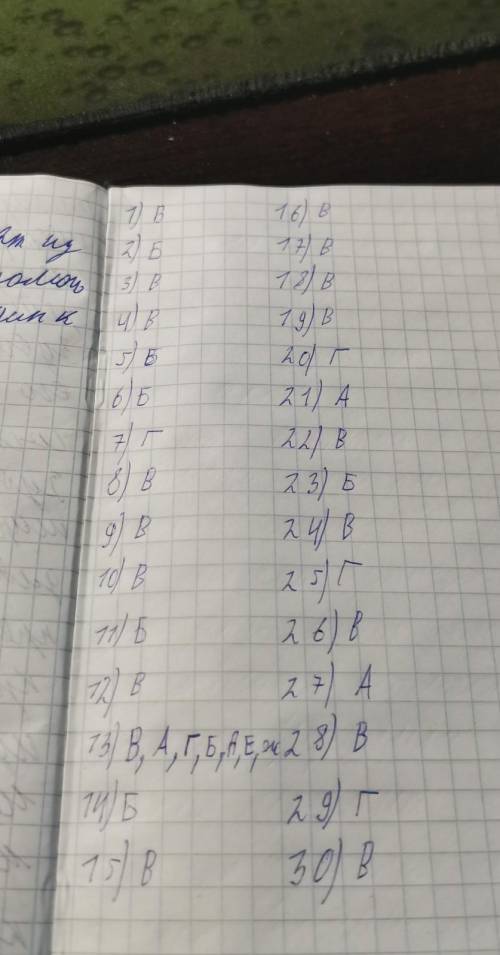 ат из
1) Б
2) Б
3) В
4) В
5) Б
6) Б
7) Г
8) В
9) В
10) В
11) Б
12) В
13) В, А, Г, Б, А, Е, ж
14) Б
15) В
16) В
17) В
18) В
19) В
20) Г
21) А
22) В
23) Б
24) В
25) Г
26) В
27) А
28) В
29) Г
30) В